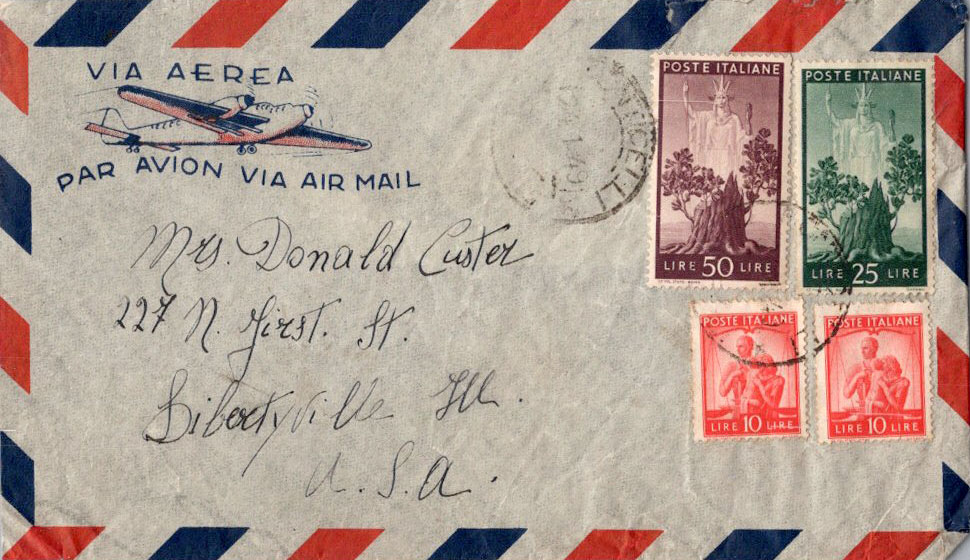 VIA AEREA
PAR AVION VIA AIR MAIL
POSTE ITALIANE
LIRE 50 LIRE
POSTE ITALIANE
LIRE 25 LIRE
Mrs. Donald Custer
227 N. First. St.
Libertyville Ill.
U.S.A.
POSTE ITALIANE
LIRE 10 LIRE
POSTE ITALIANE
LIRE 10 LIRE